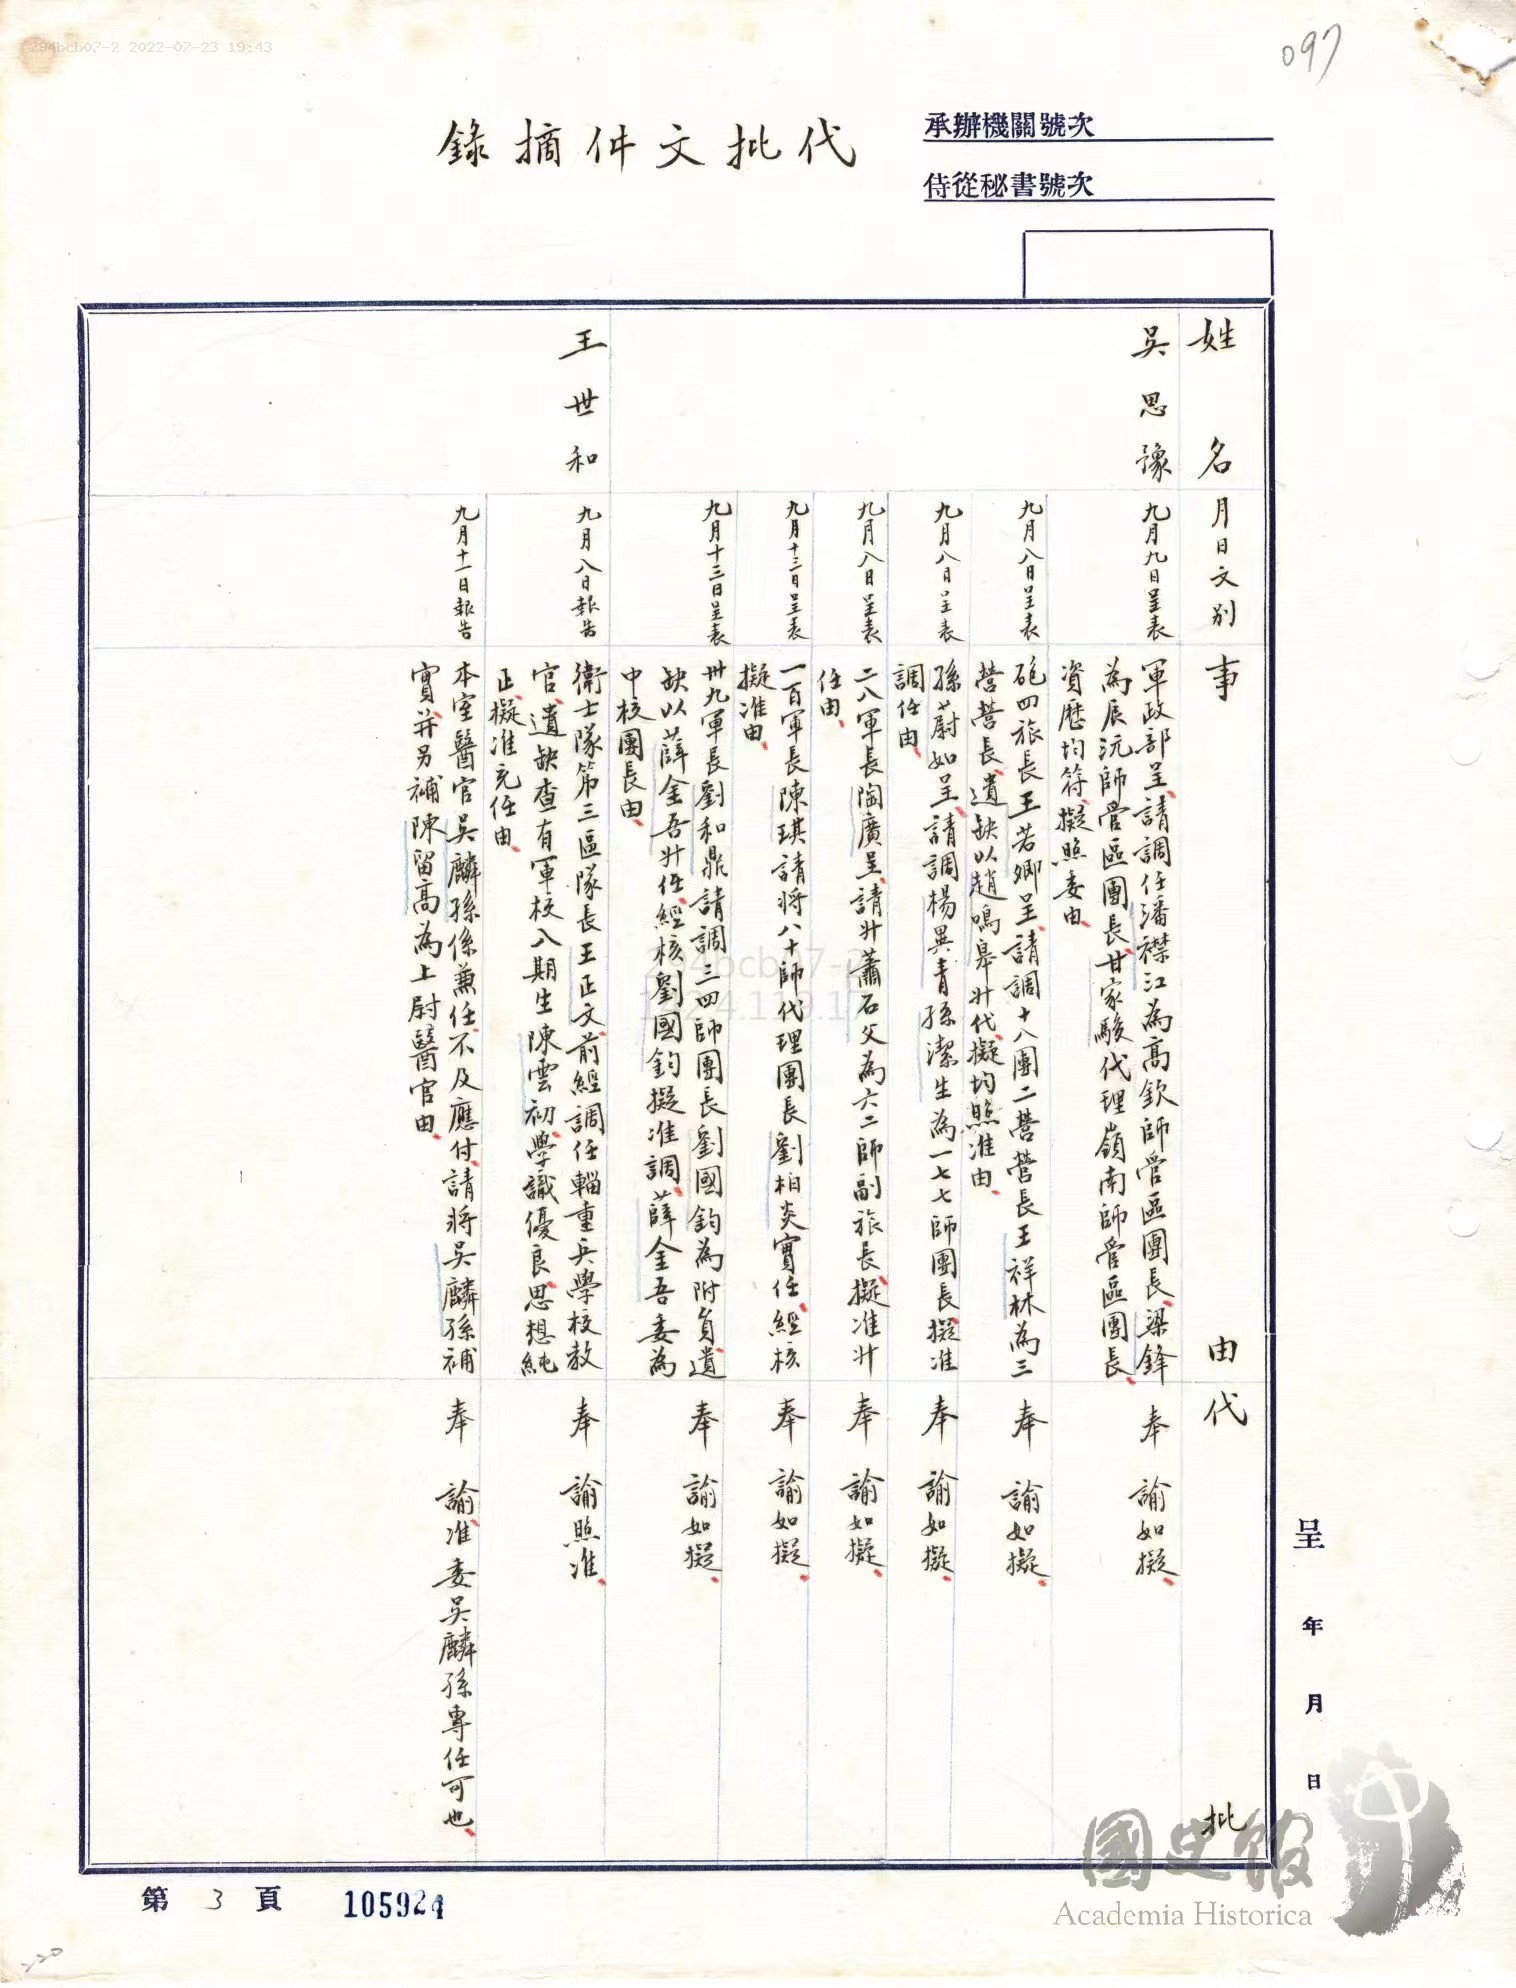 294bcb07-2 2022-07-23 19:43
097
承辦機關號次
侍從秘書號次
代批文件摘錄
呈 年 月 日
姓名
月日文別
事由
代批
吳思豫
九月九日呈表
軍政部呈、請調任潘襟江為高欽師管區團長、梁鋒
為辰沅師管區團長、甘家駿代理嶺南師管區團長、
資歷均符、擬照委由、
奉 諭如擬、
九月八日呈表
砲四旅長王若卿呈、請調十八團二營營長王祥林為三
營營長、遺缺以趙鳴皋升代、擬均照准由、
奉 諭如擬、
九月八日呈表
孫蔚如呈、請調楊異青孫潔生為一七七師團長、擬准
調任由、
奉 諭如擬、
九月八日呈表
二八軍長陶廣呈、請升蕭石父為六二師副旅長、擬准升
任由、
奉 諭如擬、
九月十三日呈表
一百軍長陳琪請將八十師代理團長劉柏炎實任、經核
擬准由、
奉 諭如擬、
九月十三日呈表
卅九軍長劉和鼎請調三四師團長劉國鈞為附員、遺
缺以薛金吾升任、經核劉國鈞擬准調、薛金吾委為
中校團長由、
奉 諭如擬、
王世和
九月八日報告
衛士隊第三區隊長王正文、前經調任輜重兵學校教
官、遺缺查有軍校八期生陳雲初、學識優良、思想純
正、擬准充任由、
奉 諭照准、
九月十一日報告
本室醫官吳麟孫係兼任、不及應付、請將吳麟孫補
實、并另補陳留高為上尉醫官由、
奉 諭、准委吳麟孫專任可也、
294bcb07-2
國史館
Academia Historica
第 3 頁
105924
220